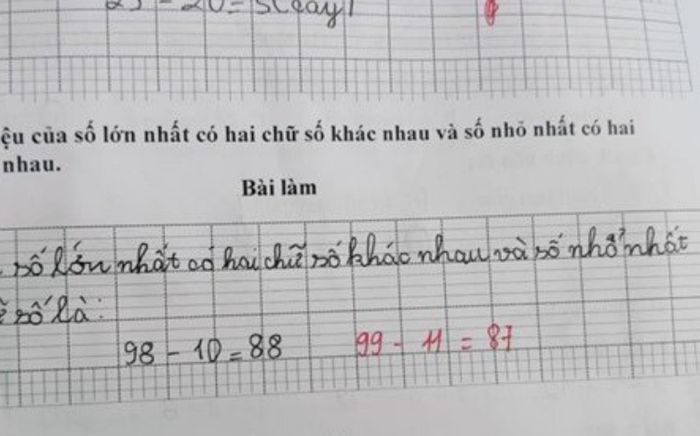 25 - 20 = 5 (cây)
ệu của số lớn nhất có hai chữ số khác nhau và số nhỏ nhất có hai
nhau.
Bài làm
số lớn nhất có hai chữ số khác nhau và số nhỏ nhất
số là:
98 - 10 = 88 99 - 11 = 87